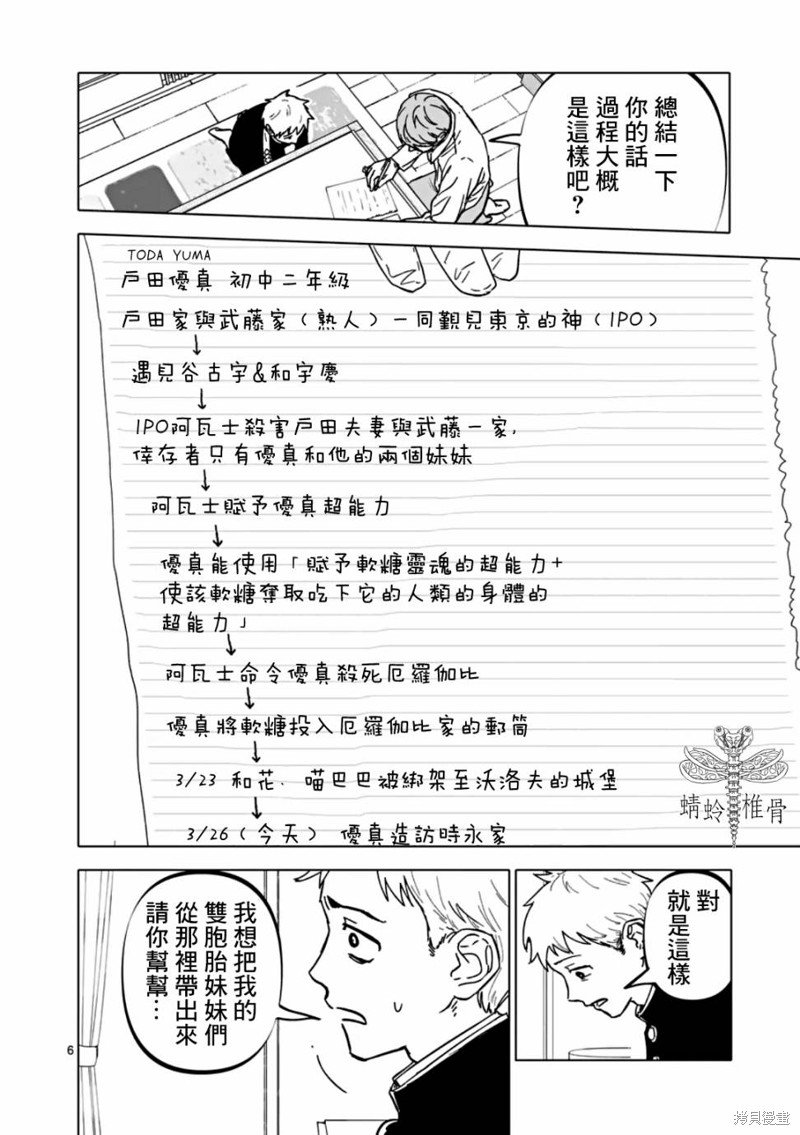 總結一下
你的話
過程大概
是這樣吧？
TODA YUMA
戶田優真 初中二年級
戶田家與武藤家（熟人）一同覲見東京的神（IPO）
↓
遇見谷古宇&和宇慶
↓
IPO阿瓦士殺害戶田夫妻與武藤一家，
倖存者只有優真和他的兩個妹妹
↓
阿瓦士賦予優真超能力
↓
優真能使用「賦予軟糖靈魂的超能力+
使該軟糖奪取吃下它的人類的身體的
超能力」
↓
阿瓦士命令優真殺死厄羅伽比
↓
優真將軟糖投入厄羅伽比家的郵筒
↓
3/23 和花、喵巴巴被綁架至沃洛夫的城堡
↓
3/26（今天） 優真造訪時永家
蜻蛉椎骨
對
就是這樣
我想把我的
雙胞胎妹妹們
從那裡帶出來
請你幫幫…
6
拷貝漫畫